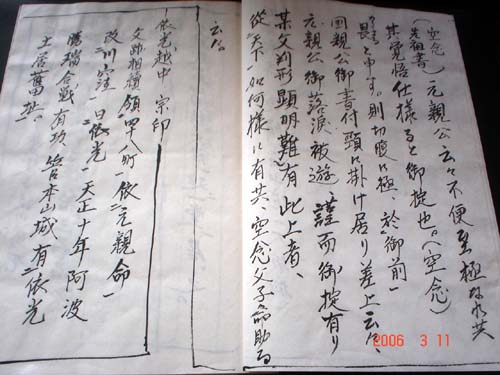 (空念
先祖書) 元親公云々不便至極な水共
其覚悟仕様ると御掟也。(空念)
畏と申す。則切腹に極、於御前一
回親公御書付頸に掛け居り差上云々、
元親公御落涙被遊 謹而御掟有り
某父判形顕明難有此上者、
従天下一如何様に有共、空念父子命助る
云々。
依光越中 宗印
文跡相続領四十八町一依元親命一
改川窪一曰依光一天正十年阿波
勝瑞合戦有功管本山城有依光
土居旧址。
2006 3 11